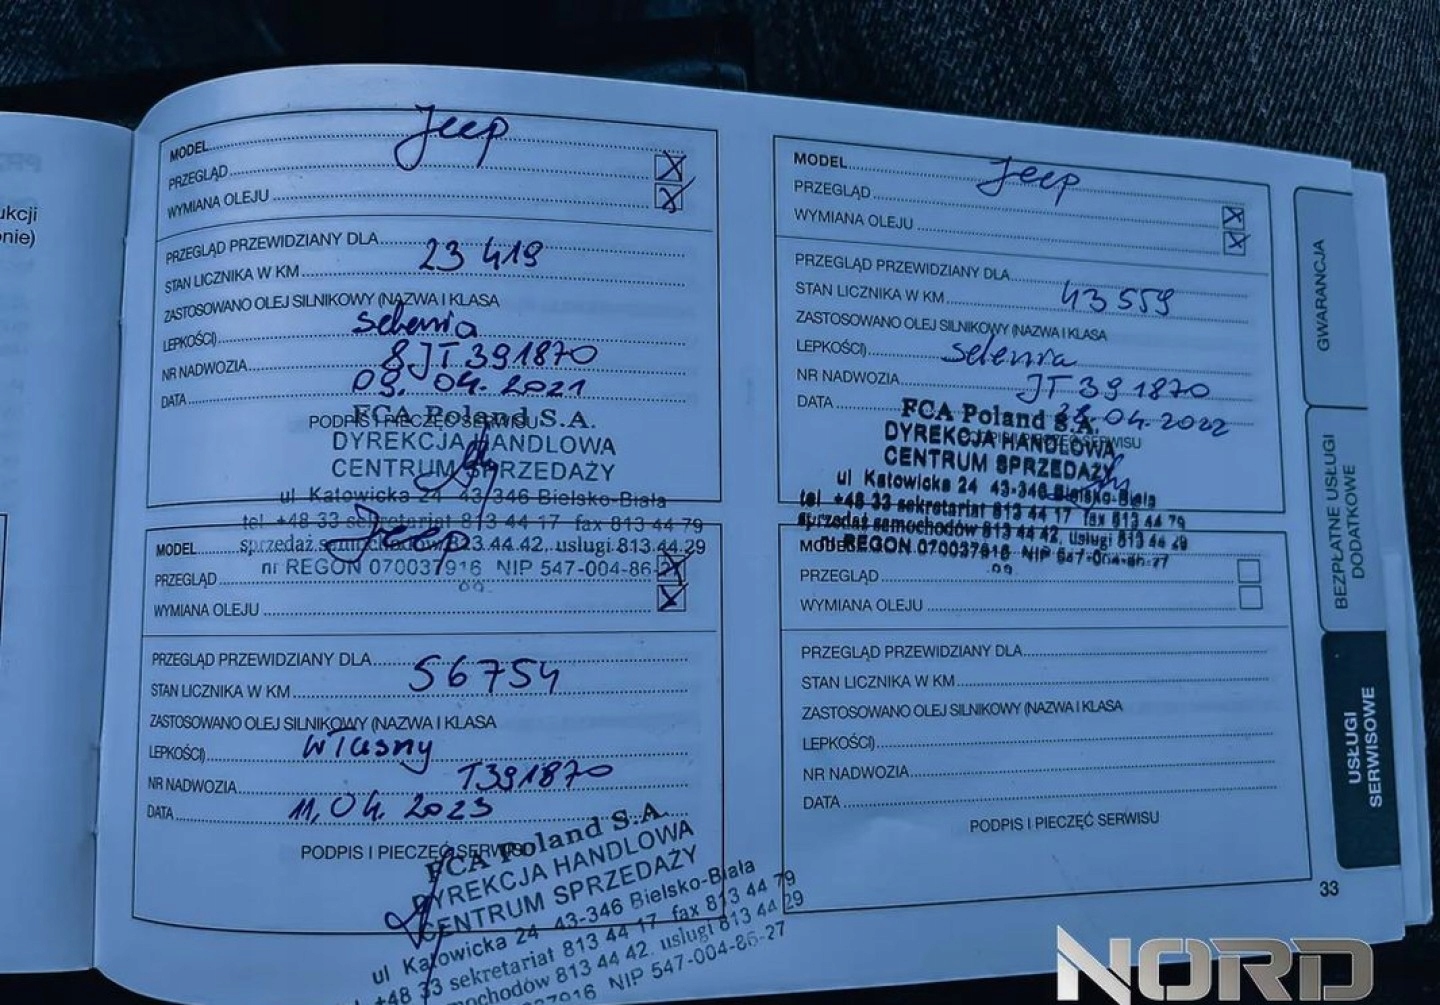 ukcji
nie)
MODEL Jeep
PRZEGLĄD X
WYMIANA OLEJU X
PRZEGLĄD PRZEWIDZIANY DLA
STAN LICZNIKA W KM 23 419
ZASTOSOWANO OLEJ SILNIKOWY (NAZWA I KLASA
LEPKOŚCI) selenia
NR NADWOZIA 8JT391870
DATA 09.04.2021
PODPIS I PIECZĘĆ SERWISU
FCA Poland S.A.
DYREKCJA HANDLOWA
CENTRUM SPRZEDAŻY
ul Katowicka 24 43-346 Bielsko-Biała
tel +48 33 sekretariat 813 44 17 fax 813 44 79
sprzedaż samochodów 813 44 42, usługi 813 44 29
nr REGON 070037916 NIP 547-004-86-27
MODEL Jeep
PRZEGLĄD X
WYMIANA OLEJU X
PRZEGLĄD PRZEWIDZIANY DLA
STAN LICZNIKA W KM 56754
ZASTOSOWANO OLEJ SILNIKOWY (NAZWA I KLASA
LEPKOŚCI) własny
NR NADWOZIA T391870
DATA 11.04.2023
PODPIS I PIECZĘĆ SERWISU
FCA Poland S.A.
DYREKCJA HANDLOWA
CENTRUM SPRZEDAŻY
ul Katowicka 24 43-346 Bielsko-Biała
+48 33 sekretariat 813 44 17 fax 813 44 79
mochodów 813 44 42. usługi 813 44 29
0037916 NIP 547-004-86-27
MODEL Jeep
PRZEGLĄD X
WYMIANA OLEJU X
PRZEGLĄD PRZEWIDZIANY DLA
STAN LICZNIKA W KM 43 559
ZASTOSOWANO OLEJ SILNIKOWY (NAZWA I KLASA
LEPKOŚCI) selenia
NR NADWOZIA JT391870
DATA 04.2022
PODPIS I PIECZĘĆ SERWISU
FCA Poland S.A.
DYREKCJA HANDLOWA
CENTRUM SPRZEDAŻY
ul Katowicka 24 43-346 Bielsko-Biała
tel +48 33 sekretariat 813 44 17 fax 813 44 79
sprzedaż samochodów 813 44 42, usługi 813 44 29
nr REGON 070037916 NIP 547-004-86-27
MODEL
PRZEGLĄD
WYMIANA OLEJU
PRZEGLĄD PRZEWIDZIANY DLA
STAN LICZNIKA W KM
ZASTOSOWANO OLEJ SILNIKOWY (NAZWA I KLASA
LEPKOŚCI)
NR NADWOZIA
DATA
PODPIS I PIECZĘĆ SERWISU
GWARANCJA
BEZPŁATNE USŁUGI
DODATKOWE
USŁUGI
SERWISOWE
33
NORD